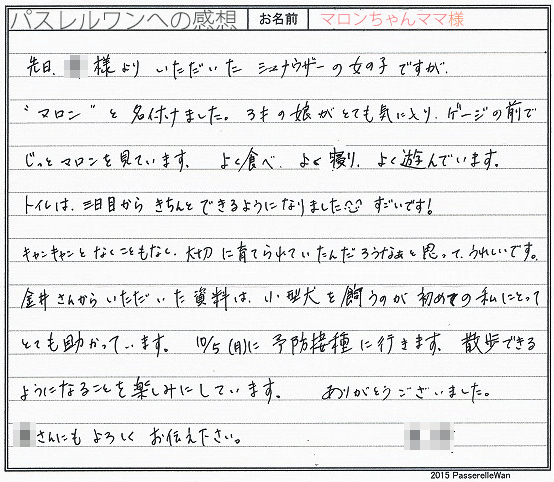 パスレルワンへの感想 お名前 マロンちゃんママ様
先日、様より いただいた シュナウザーの女の子ですが、
"マロン"と名付けました。3才の娘がとても気に入り、ゲージの前で
じっとマロンを見ています。よく食べ、よく寝り、よく遊んでいます。
トイレは、三日目から きちんとできるようになりました すごいです!
キャンキャンとなくこともなく、大切に育てられていたんだろうなぁと思って、うれしいです。
金井さんからいただいた資料は、小型犬を飼うのが初めての私にとって
とても助かっています。10/5(月)に予防接種に行きます。散歩できる
ようになることを楽しみにしています。ありがとうございました。
さんにもよろしくお伝え下さい。
2015 PasserelleWan